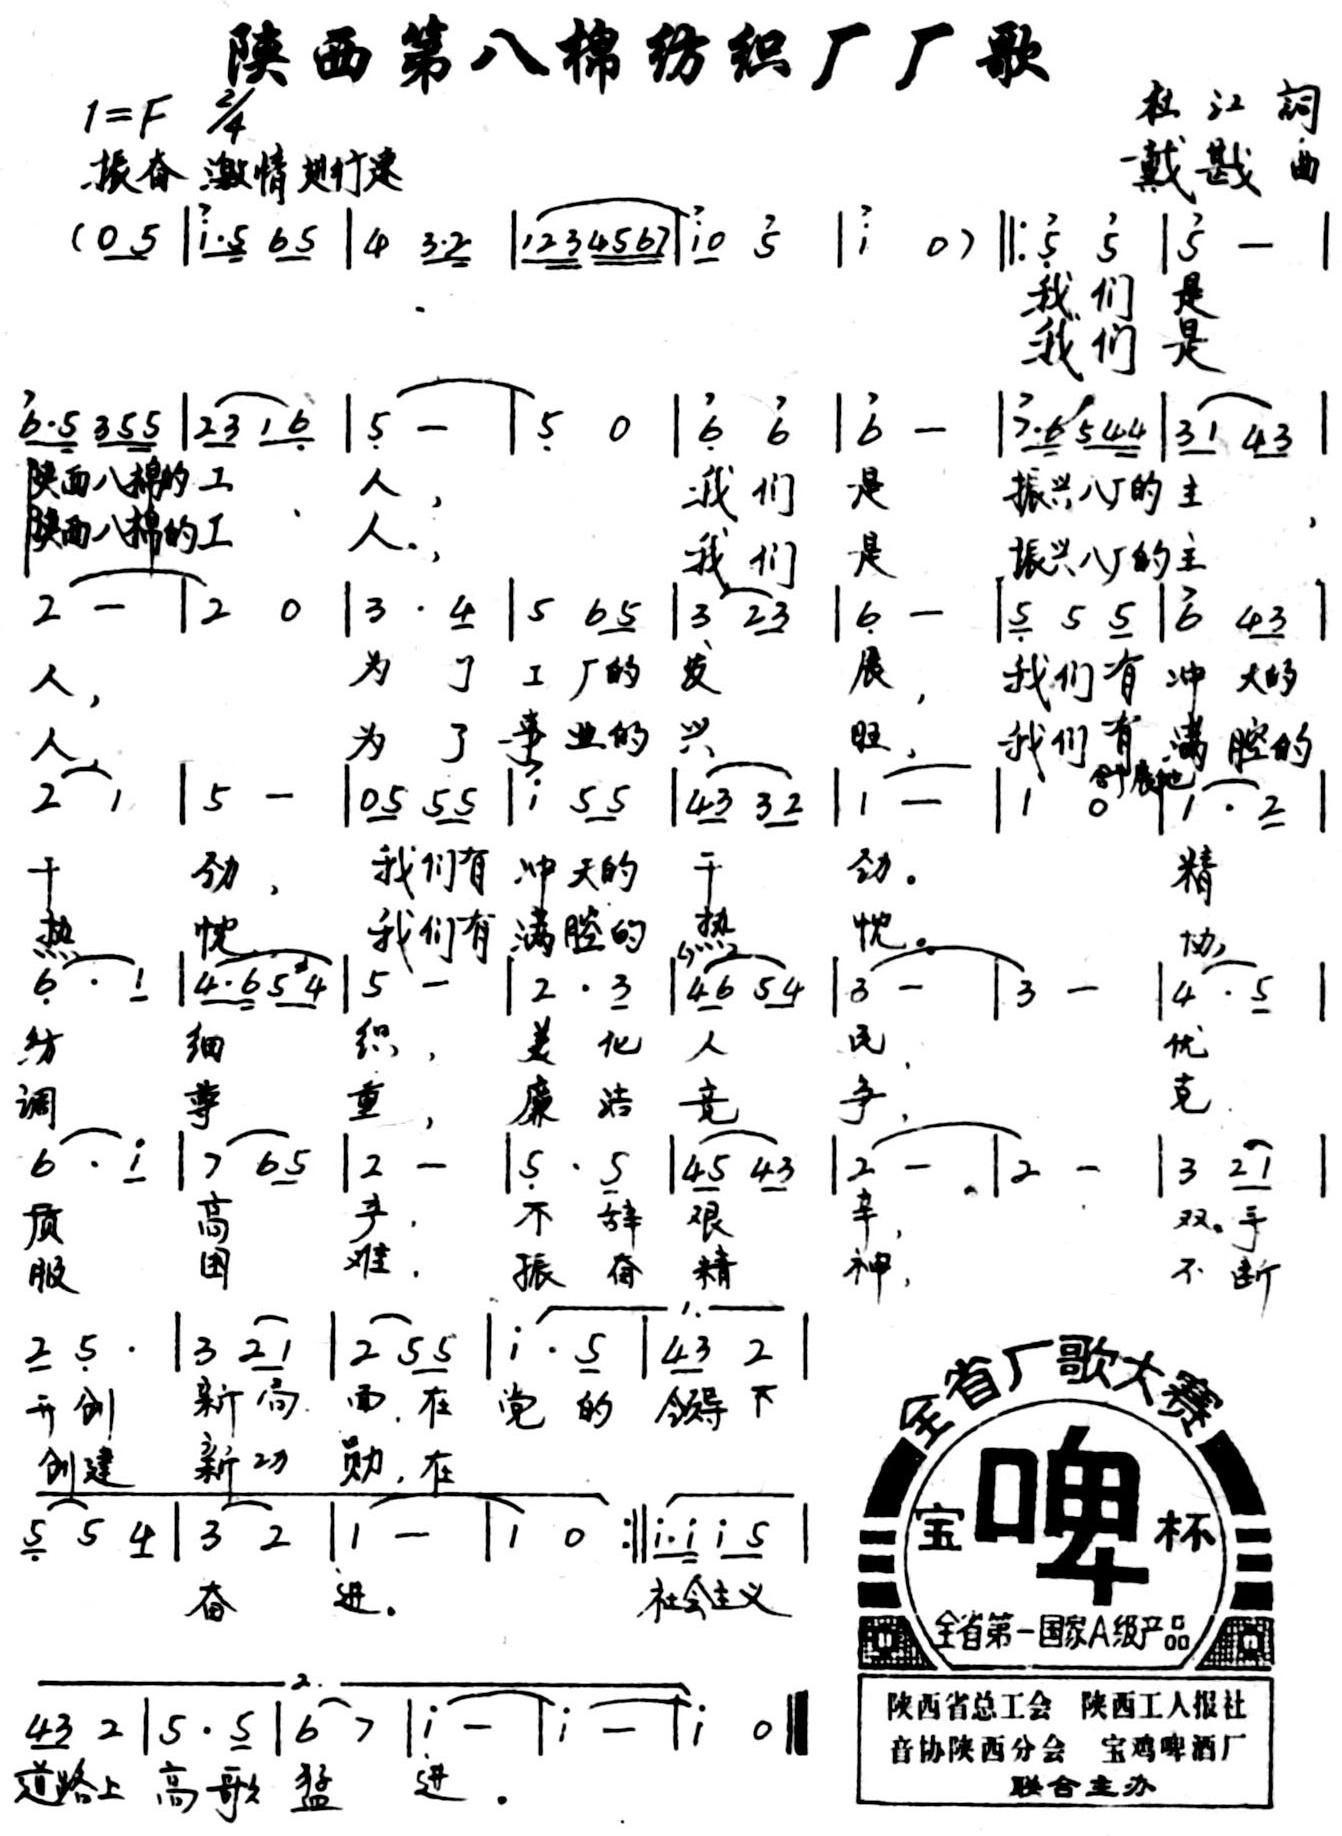 陕西第八棉纺织厂厂歌
1=F 2/4
杜江 詞
振奋 激情 进行速
戴戡 曲
(0 5 | i·5 6 5 | 4 3·2 | 1 2 3 4 5 6 7 | i 0 5 | i 0) ‖: 5 5 | 5 — |
我们 是
我们 是
6·5 3 5 5 | 2 3 1 6 | 5 — | 5 0 | 6 6 | 6 — | 7·6 5 4 4 | 3 1 4 3 |
陕西八棉的工 人, 我们 是 振兴八厂的主
陕西八棉的工 人, 我们 是 振兴八厂的主
2 — | 2 0 | 3 · 4 | 5 6 5 | 3 2 3 | 6 — | 5 5 5 | 6 4 3 |
人, 为了 工厂的 发 展, 我们有 冲天的
人, 为了 事业的 兴 旺, 我们有 满腔的
舒展地
2 1 | 5 — | 0 5 5 5 | i 5 5 | 4 3 3 2 | 1 — | 1 0 | 1 · 2 |
干 劲, 我们有 冲天的 干 劲。 精
热 忱 我们有 满腔的 热 忱。 协
6 · 1 | 4·6 5 #4 | 5 — | 2 · 3 | 4 6 5 4 | 3 — | 3 — | 4 · 5 |
纺 细 织, 美化 人 民, 优
调 尊 重, 廉洁 竞 争, 克
6 · i | 7 6 5 | 2 — | 5 · 5 | 4 5 4 3 | 2 — | 2 — | 3 2 1 |
质 高 产. 不辞 艰 辛, 双手
服 困 难. 振奋 精 神, 不断
1.
2 5 · | 3 2 1 | 2 5 5 | i · 5 | 4 3 2 |
开创 新局 面, 在 党的 领导下
创建 新功 勋, 在
5 5 4 | 3 2 | 1 — | 1 0 :‖ i·i i 5 |
奋 进。 社会主义
2.
4 3 2 | 5 · 5 | 6 7 | i — | i — | i 0 ‖
道路上 高歌 猛 进。
全省厂歌大赛
宝啤杯
全省第一国家A级产品
陕西省总工会 陕西工人报社
音协陕西分会 宝鸡啤酒厂
联合主办